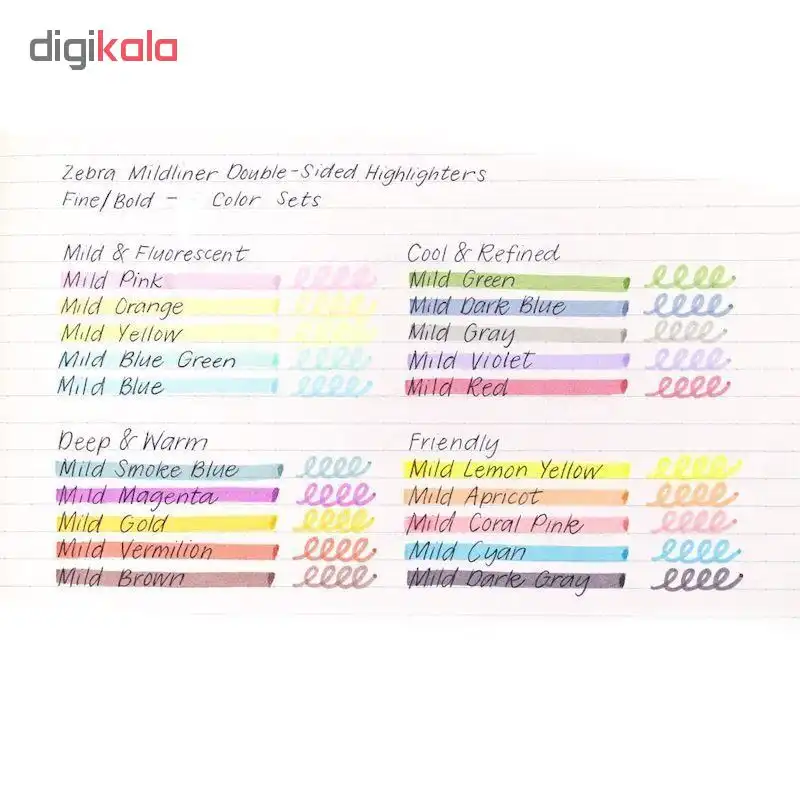 digikala
Zebra Mildliner Double-Sided Highlighters
Fine/Bold - Color Sets
Mild & Fluorescent
Mild Pink
Mild Orange
Mild Yellow
Mild Blue Green
Mild Blue
Cool & Refined
Mild Green
Mild Dark Blue
Mild Gray
Mild Violet
Mild Red
Deep & Warm
Mild Smoke Blue
Mild Magenta
Mild Gold
Mild Vermilion
Mild Brown
Friendly
Mild Lemon Yellow
Mild Apricot
Mild Coral Pink
Mild Cyan
Mild Dark Gray